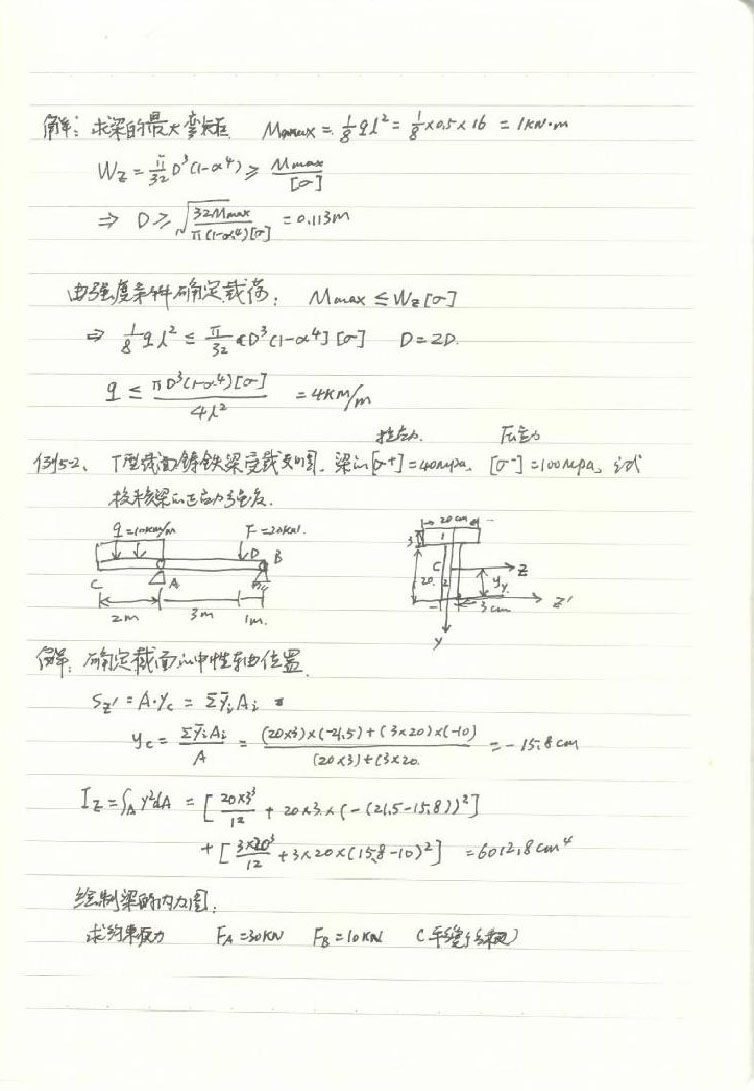 解: 求梁的最大弯矩 Mmax = 1/8 ql² = 1/8×0.5×16 = 1KN·m
Wz = π/32 D³(1-α⁴) ≥ Mmax/[σ]
⇒ D ≥ √(32Mmax/π(1-α⁴)[σ]) = 0.113m
由强度条件确定载荷: Mmax ≤ Wz[σ]
⇒ 1/8 ql² ≤ π/32 D³(1-α⁴)[σ] D=2D.
q ≤ πD³(1-α⁴)[σ]/4l² = 4KN/m
拉应力. 压应力
例5-2、T型截面铸铁梁受载如图. 梁的[σ+]=40Mpa. [σ-]=100Mpa, 试
校核梁的正应力强度.
q=10KN/m F=20KN. 20cm
3 1
D B
C A
C Z
20 2 yc
2m 3m 1m. 3cm Z'
y
解: 确定截面的中性轴位置
Sz' = A·yc = Σȳi Ai =
yc = Σȳi Ai/A = (20×3)×(-21.5)+(3×20)×(-10)/(20×3)+(3×20 = -15.8cm
Iz = ∫A y²dA = [20×3³/12 + 20×3×(-(21.5-15.8))²]
+ [3×20³/12 + 3×20×(15.8-10)²] = 6012.8cm⁴
绘制梁的内力图:
求约束反力 FA=30KN FB=10KN